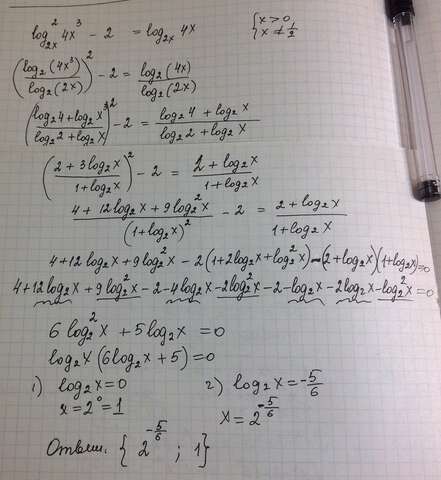 log²₂ₓ 4x³ - 2 = log₂ₓ 4x { x > 0, x ≠ 1/2
(log₂(4x³)/log₂(2x))² - 2 = log₂(4x)/log₂(2x)
((log₂4 + log₂x³)/(log₂2 + log₂x))² - 2 = (log₂4 + log₂x)/(log₂2 + log₂x)
((2 + 3log₂x)/(1 + log₂x))² - 2 = (2 + log₂x)/(1 + log₂x)
(4 + 12log₂x + 9log₂²x)/(1 + log₂x)² - 2 = (2 + log₂x)/(1 + log₂x)
4 + 12log₂x + 9log₂²x - 2(1 + 2log₂x + log₂²x) - (2 + log₂x)(1 + log₂x) = 0
4 + 12log₂x + 9log₂²x - 2 - 4log₂x - 2log₂²x - 2 - log₂x - 2log₂x - log₂²x = 0
6log₂²x + 5log₂x = 0
log₂x(6log₂x + 5) = 0
1) log₂x = 0 2) log₂x = -5/6
x = 2⁰ = 1 x = 2^(-5/6)
Ответ: { 2^(-5/6) ; 1 }